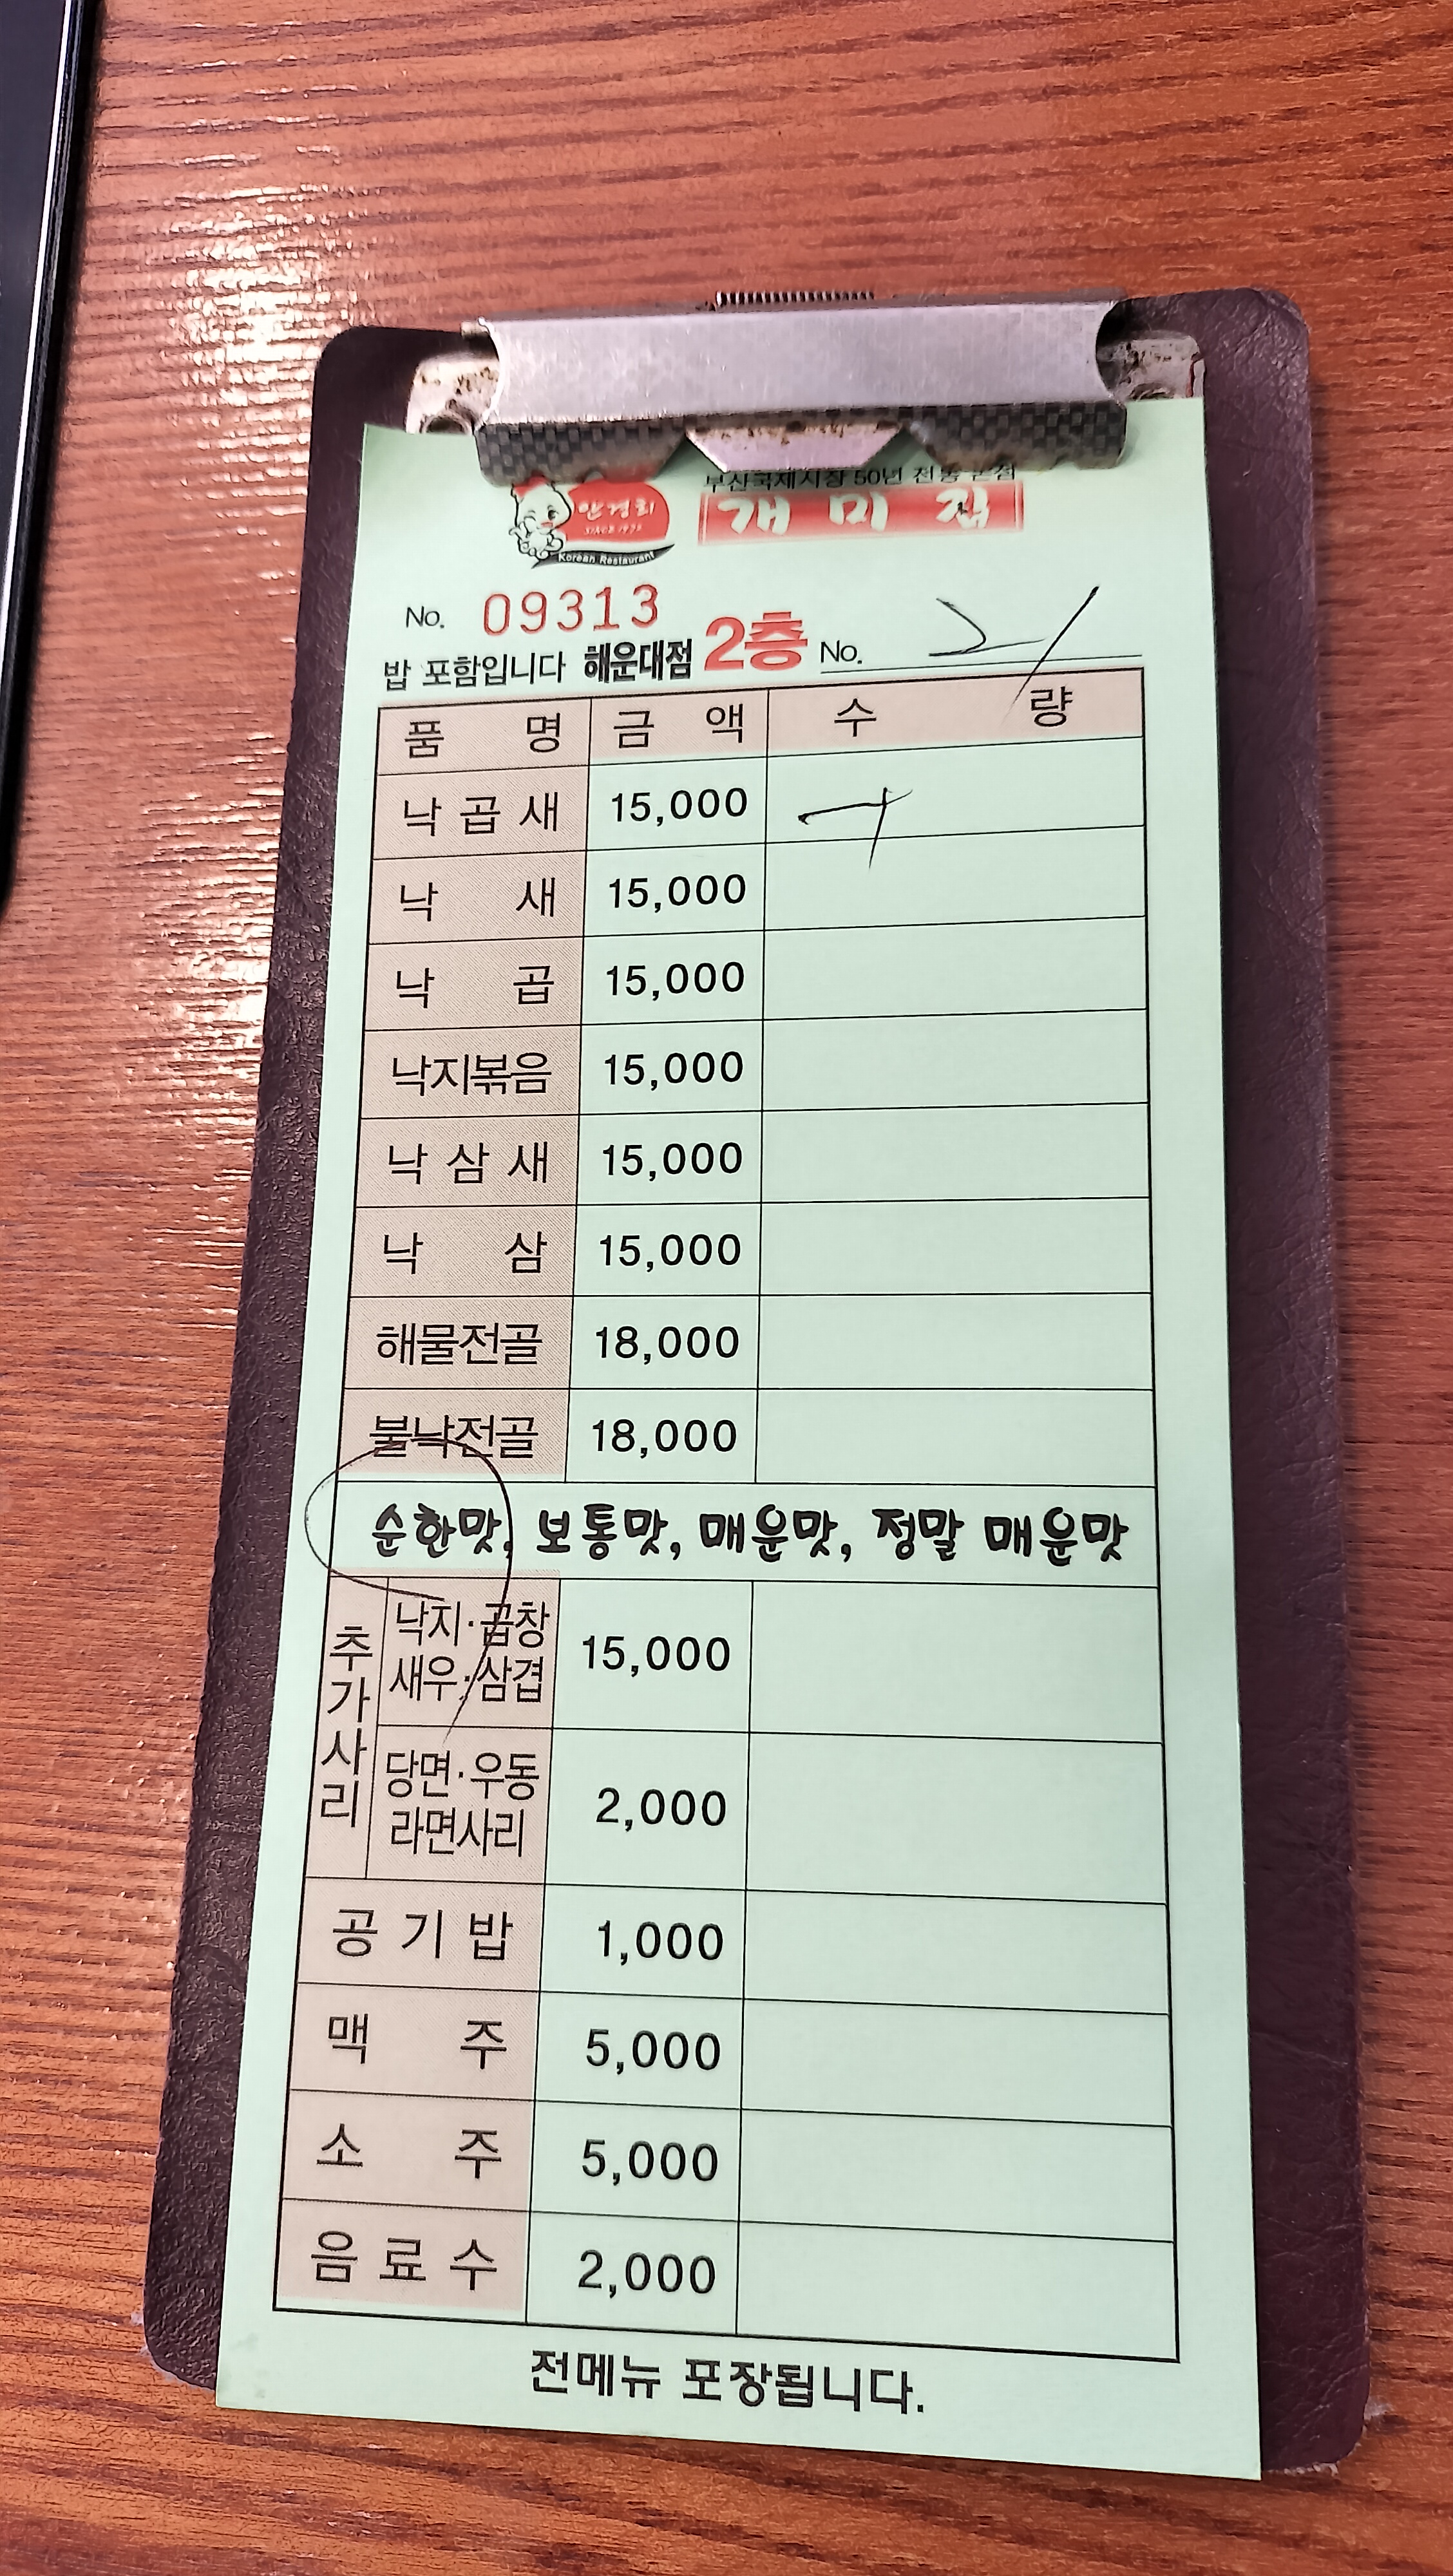 부산국제시장 50년 전통 본점
안경회
SINCE 1972
Korean Restaurant
개미집
No. 09313
밥 포함입니다 해운대점 2층 No. 21
품명 금액 수량
낙곱새 15,000
낙새 15,000
낙곱 15,000
낙지볶음 15,000
낙삼새 15,000
낙삼 15,000
해물전골 18,000
불낙전골 18,000
순한맛, 보통맛, 매운맛, 정말 매운맛
추가사리
낙지·곱창
새우·삼겹 15,000
당면·우동
라면사리 2,000
공기밥 1,000
맥주 5,000
소주 5,000
음료수 2,000
전메뉴 포장됩니다.